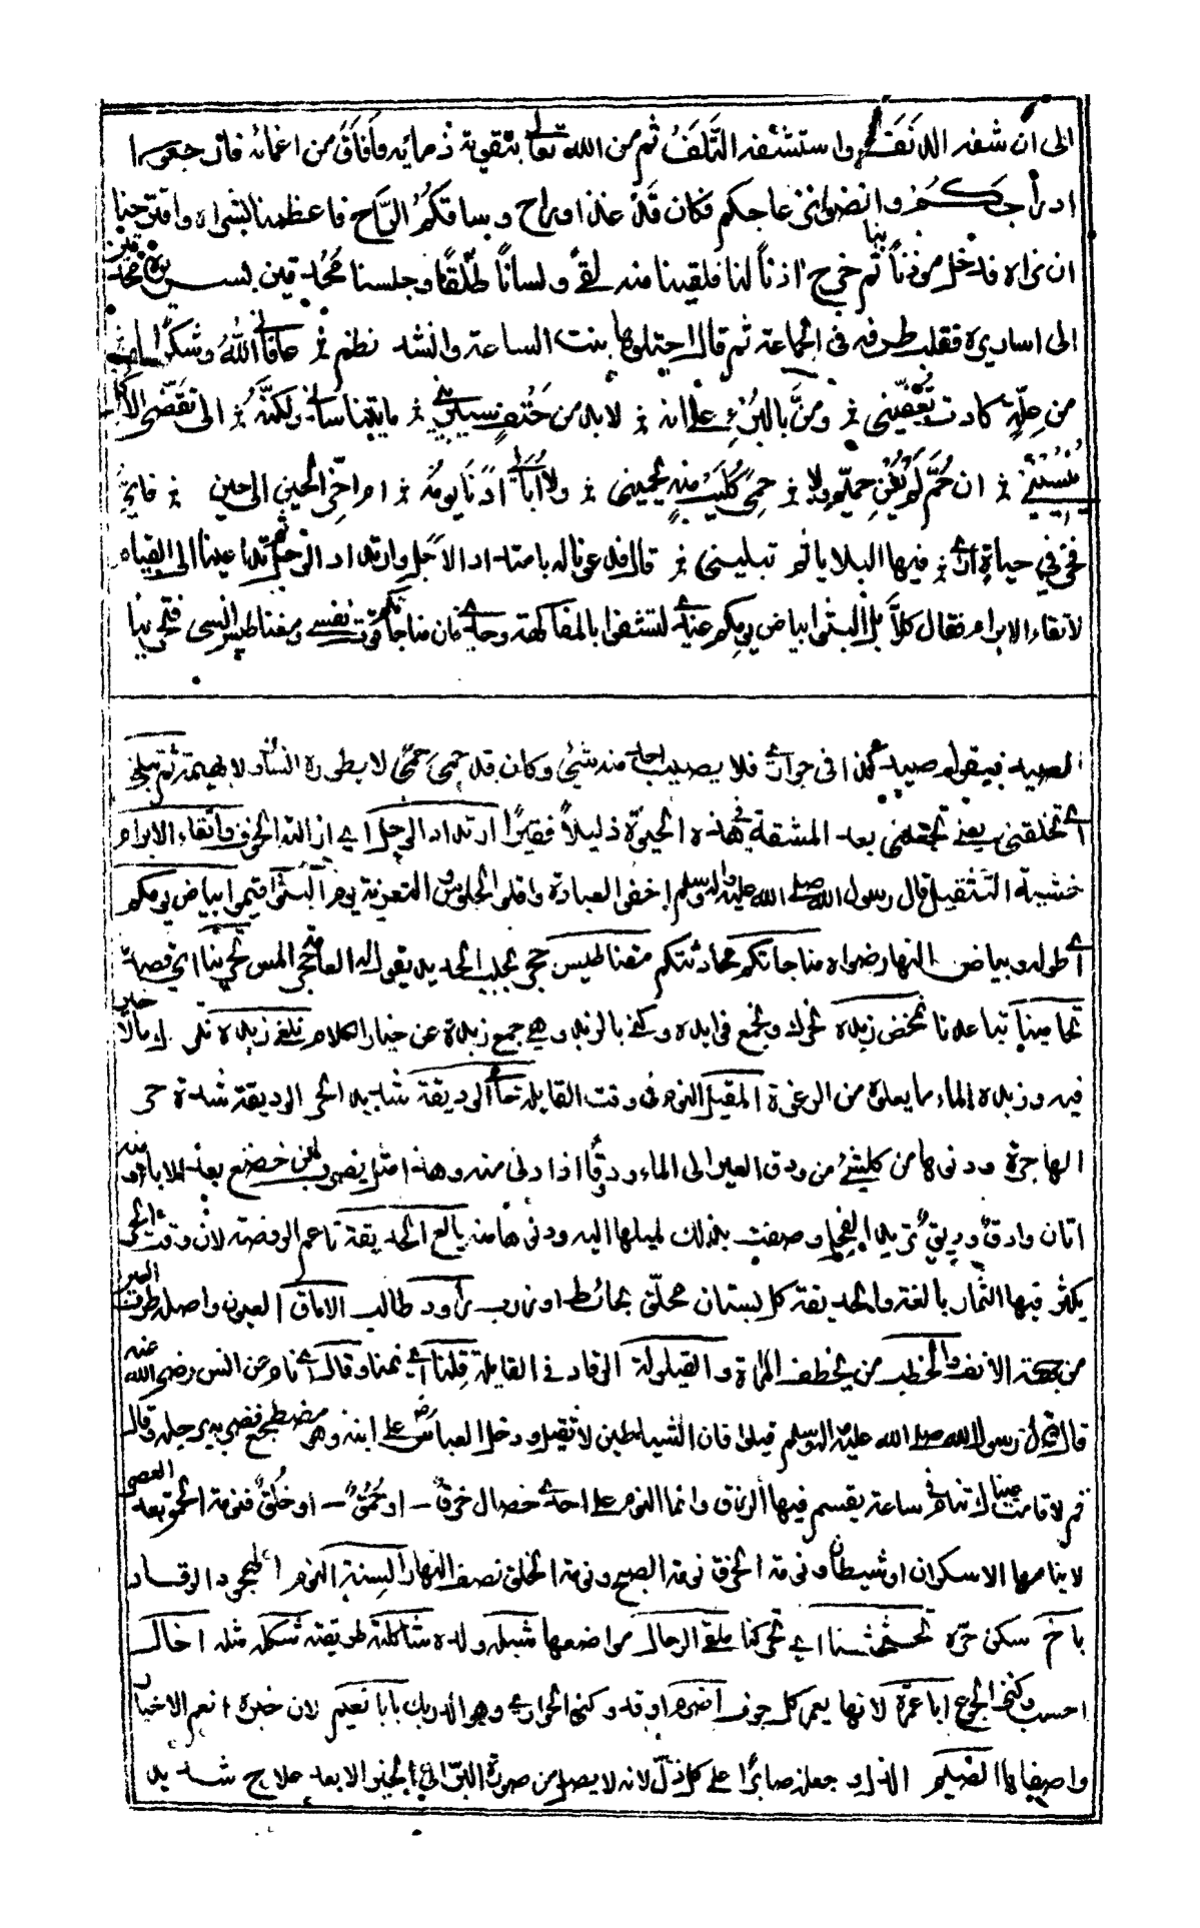 الى ان شفه الدنف واستشفه التلف ثم من الله تعالى بتقوية ذمائه فافاق من اغمائه فارجعوا
ادراجكم وانضوا انزعاجكم فكان قد غدا وراح وساقاكم الراح فاعظمنا بشراه واقترحنا
ان نراه فدخل موذنا بنا ثم خرج اذنا لنا فلقينا منه لقى ولسانا طلقا وجلسنا محدقين بسريره محدقين
الى اساريره فقلب طرفه فى الجماعة ثم قال اجتلوها بنت الساعة وانشد نظم عافانى الله وشكرا له
من علة كادت تعفينى ومن بالبرء على انه لا بد من حتف سيبرينى ما يتناسانى ولكنه الى تقضى الاكل
ينسينى ان حم لم يغن حميم ولا حمى كليب منه يحمينى ولا ابالى ادنا يومه ام اخر الحين الى حين فاى
فخر فى حياة ارى فيها البلايا ثم تبلينى قال فدعونا له بامتداد الاجل وارتداد الوجل ثم تداعينا الى القيام
لاتقاء الابرام فقال كلا بل البثوا بياض يومكم عندى لتشفوا بالمفاكهة وجدى فان مناجاتكم قوت نفسى ومغناطيس انسى فتحرينا
الصيد فيقول صيد كذا فى جوارى فلا يصيب احد منه شئ وكان قد حمى حمى لا يطوره انسان ولا بهيمة ثم تبلينى
اى تخلقنى يعنى تجعلنى بعد المشقة فى هذه الحيوة ذليلا فقيرا ارتداد الوجل اى ازالة الخوف واتقاء الابرام
خشية التثقيل قال رسول الله صلى الله عليه واله وسلم اخفوا العيادة واقلوا الجلوس والتعزية يوم البثوا اقيموا بياض يومكم
اى طوله وبياض النهار ضواه مناجاتكم محادثتكم مغناطيس حجر يجلب الحديد يقول له العامة حجر المس تحرينا اى قصدنا
تحامينا تباعدنا نمخض زبده نحرك ونجمع فى ابده وكنى بالزبد وهى جمع زبدة عن خيار الكلام نلغى زبده نترك مالا خير
فيه وزبده الماء ما يعلوه من الرغوة المقيل النوم فى وقت القايلة حامى الوديقة شديد الحر الوديقة شدة حر
الهاجرة ودنوها من كل شئ من ودق العير الى الماء ودقا اذا دنى منه وهذا مثل يضرب لمن خضع بعد الاباء ومنه
اتان وادق ووديق تريد الفحل وصفت بذلك لميلها اليه ودنوها منه يانع الحديقة ناعم الروضة لان وقت الحر
يكثر فيها الثمار بالغة والحديقة كل بستان محلق بحائط او زرب راود طالب الاماق العيون واصله طرف العين
من جهة الانف والخطب من يخطف المراة والقيلولة الرقاد فى القايلة قلنا اى نمنا وقال اى نام عن انس رضى الله عنه
قال قال رسول الله صلى الله عليه واله وسلم قيلوا فان الشياطين لا تقيل ودخل العباس رض على ابنه وهو مضطجع فضربه برجله وقال
قم لا قامت عينك تنام فى ساعة يقسم فيها الارزاق وانما النوم على احدى خصال خرق او حمق او خلق فنومة الحمق بعد العصر
لا ينامها الا سكران او شيطان ونومة الخرق نومة الصبح ونومة الخلق نصف النهار السنة النوم الهجود الرقاد
باخ سكن حره تحثحثنا اى تحركنا ملقى الرحال مواضعها شبله ولده شاكلته طريقته شكله مثله اخال
احسب وكنى الجوع ابا عمرة لانها يعمر كل جوف اضرم اوقد وكنى الحوارى وهو الدرمك بابا نعيم لان خبزه انعم الاخباز
واصفاها الضيم الذل وجعله صابرا على كل ذل لانه لا يصل من صورة البر الى الخبز الا بعد علاج شديد